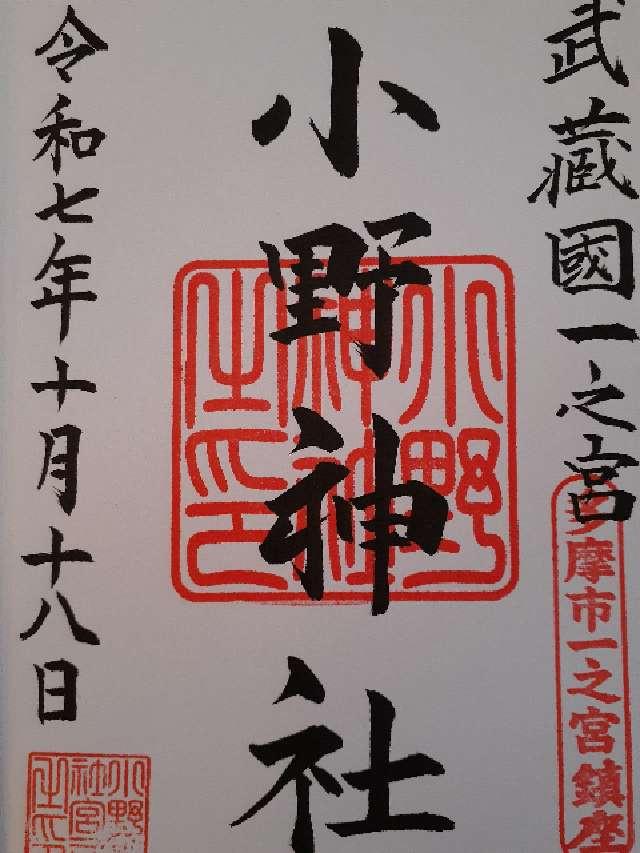 武藏國一之宮
多摩市一之宮鎮座
小野神社
小野神社之印
令和七年十月十八日
小野神社宮司之印